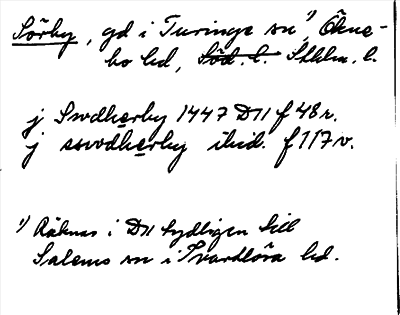 Sörby, gd i Turinge sn¹⁾, Ökne-
bo hd, Söd. l. Sthlm. l.
j Swdherby 1447 D11 f 48 r.
j sswdherby ibid. f 117 v.
¹⁾ Räknas i D11 tydligen till
Salems sn i Svartlösa hd.